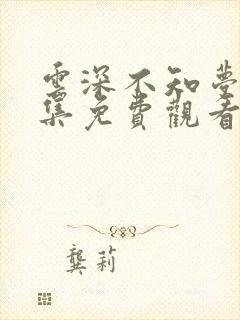 雲深不知夢
集免費觀看
龔莉